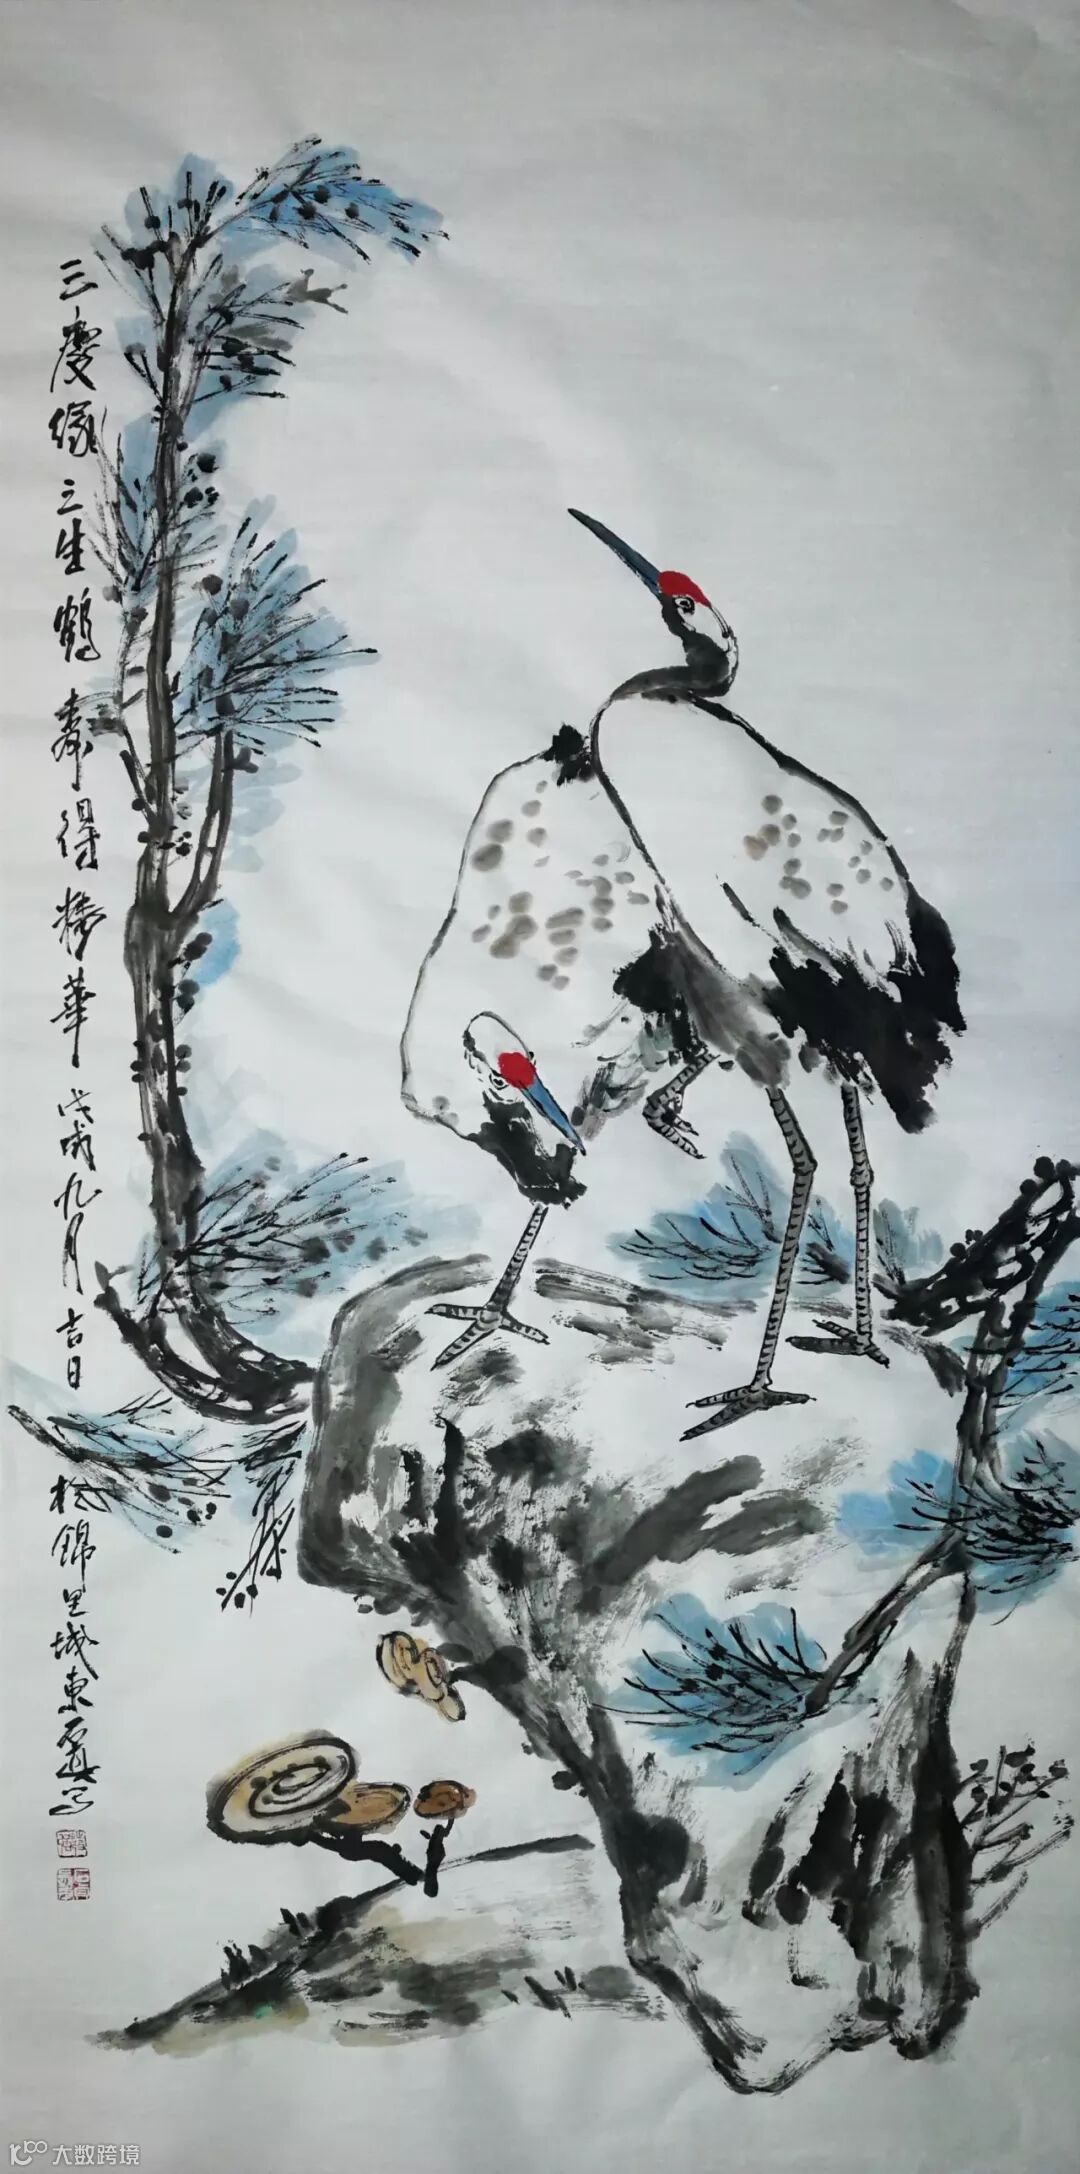 三慶緣之生鶴壽得精華戊戌九月吉日於錦里城東震寫
大数跨境